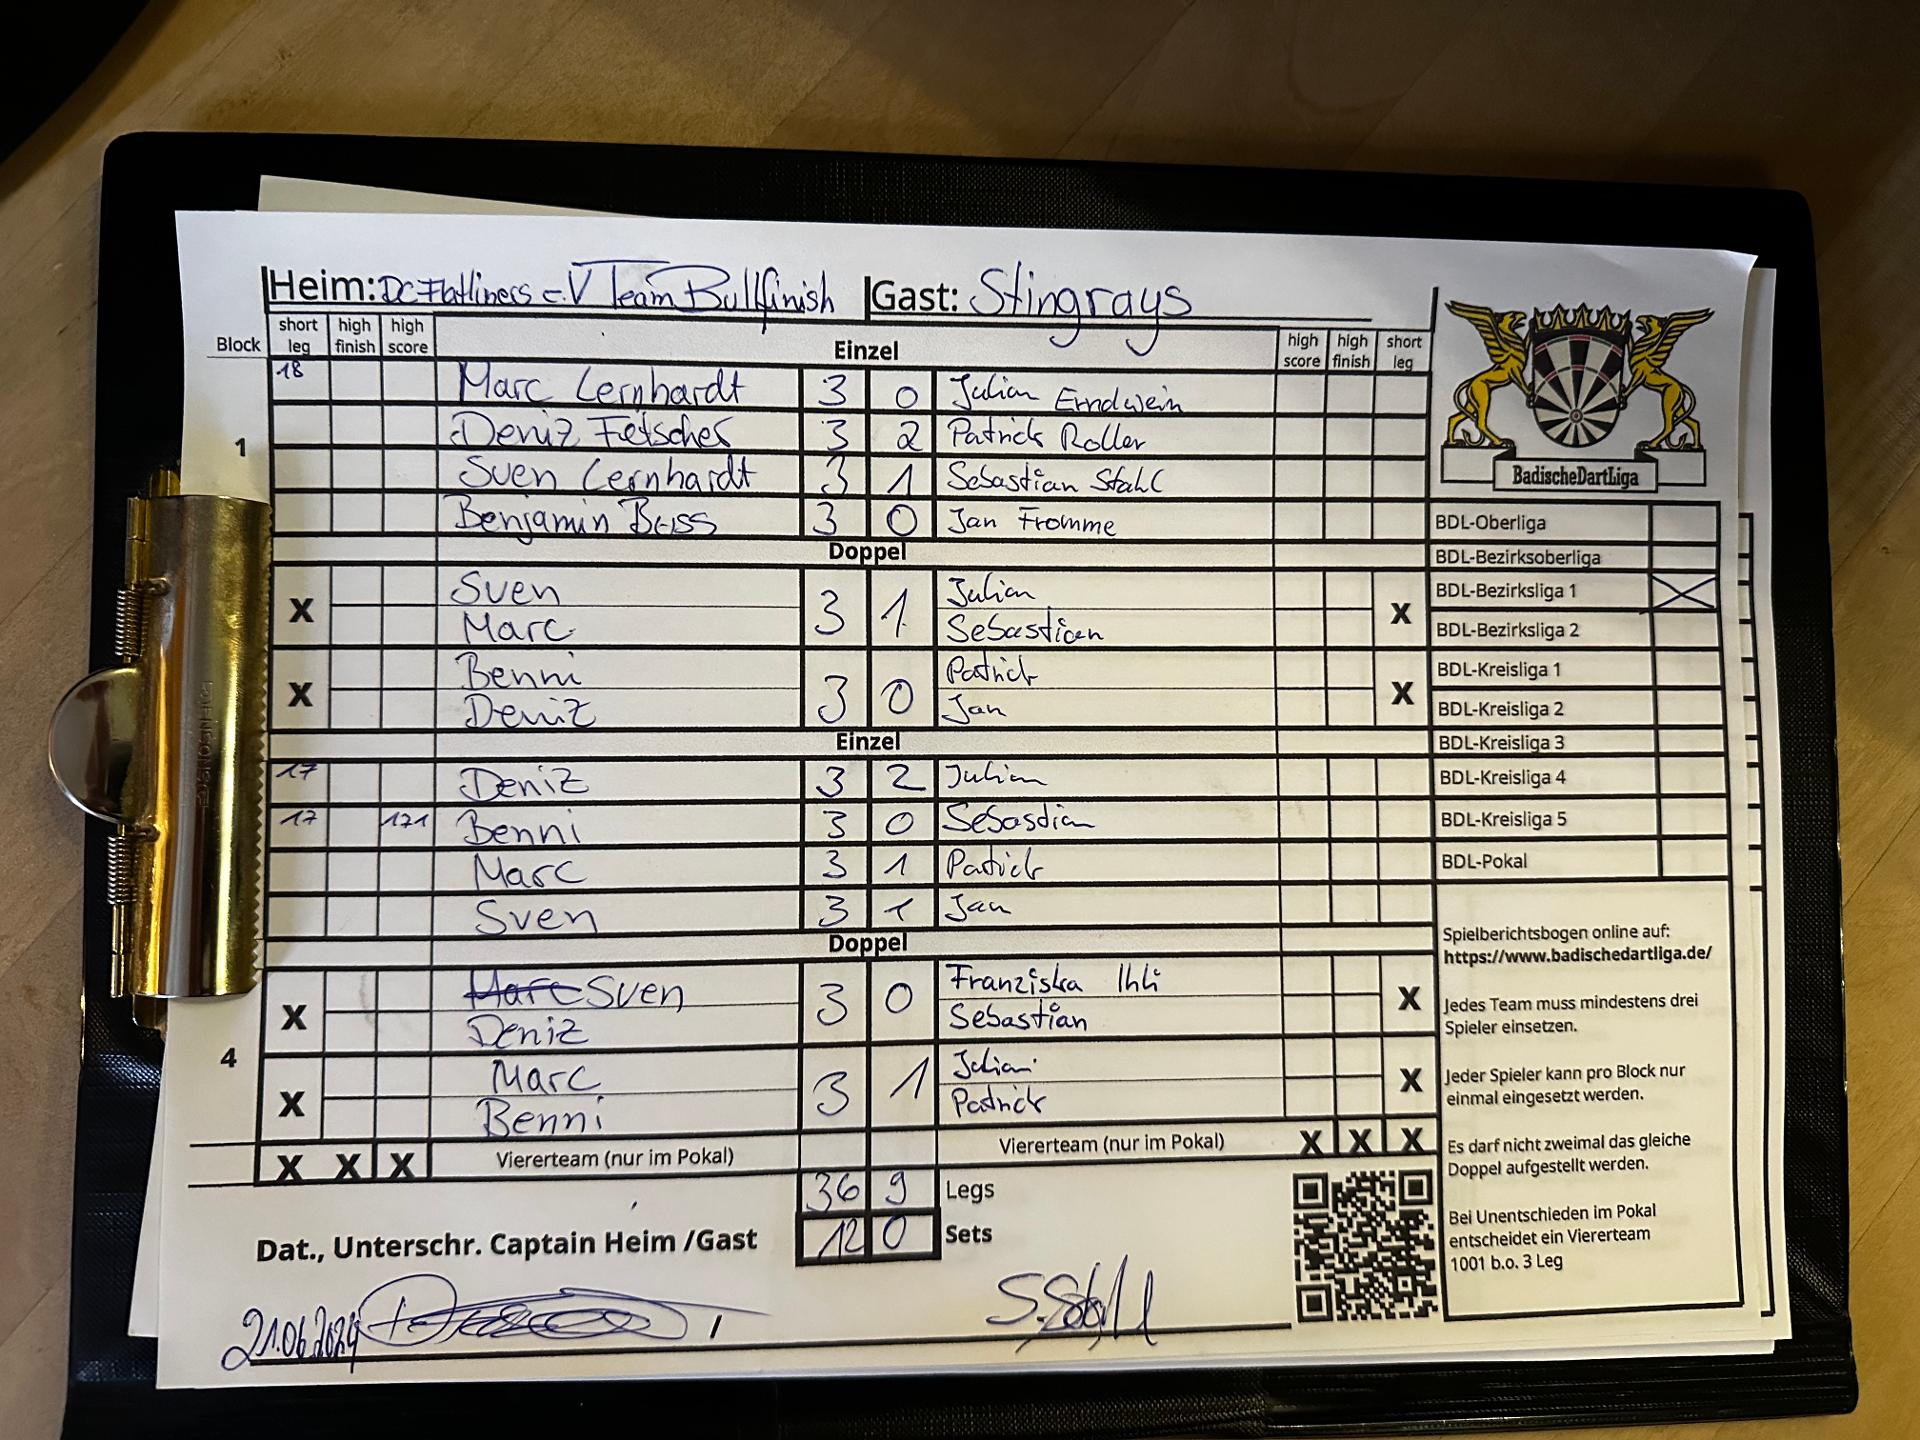 Heim: DC Flatliners e.V Team Bullfinish Gast: Stingrays
Block short leg high finish high score Einzel high score high finish short leg
18 Marc Lernhardt 3 0 Julian Erndwein
1 Deniz Fetscher 3 2 Patrick Roller
Sven Lernhardt 3 1 Sebastian Stahl
Benjamin Beiss 3 0 Jan Fromme
Doppel
X Sven 3 1 Julian X
Marc Sebastian
X Benni 3 0 Patrick X
Deniz Jan
Einzel
17 Deniz 3 2 Julian
17 171 Benni 3 0 Sebastian
Marc 3 1 Patrick
Sven 3 1 Jan
Doppel
X Marc Sven 3 0 Franziska Ihli X
Deniz Sebastian
4
X Marc 3 1 Julian X
Benni Patrick
X X X Viererteam (nur im Pokal) Viererteam (nur im Pokal) X X X
36 9 Legs
12 0 Sets
Dat., Unterschr. Captain Heim /Gast
21.06.2024 / S. Stahl
BadischeDartLiga
BDL-Oberliga
BDL-Bezirksoberliga
BDL-Bezirksliga 1 X
BDL-Bezirksliga 2
BDL-Kreisliga 1
BDL-Kreisliga 2
BDL-Kreisliga 3
BDL-Kreisliga 4
BDL-Kreisliga 5
BDL-Pokal
Spielberichtsbogen online auf:
https://www.badischedartliga.de/
Jedes Team muss mindestens drei
Spieler einsetzen.
Jeder Spieler kann pro Block nur
einmal eingesetzt werden.
Es darf nicht zweimal das gleiche
Doppel aufgestellt werden.
Bei Unentschieden im Pokal
entscheidet ein Viererteam
1001 b.o. 3 Leg